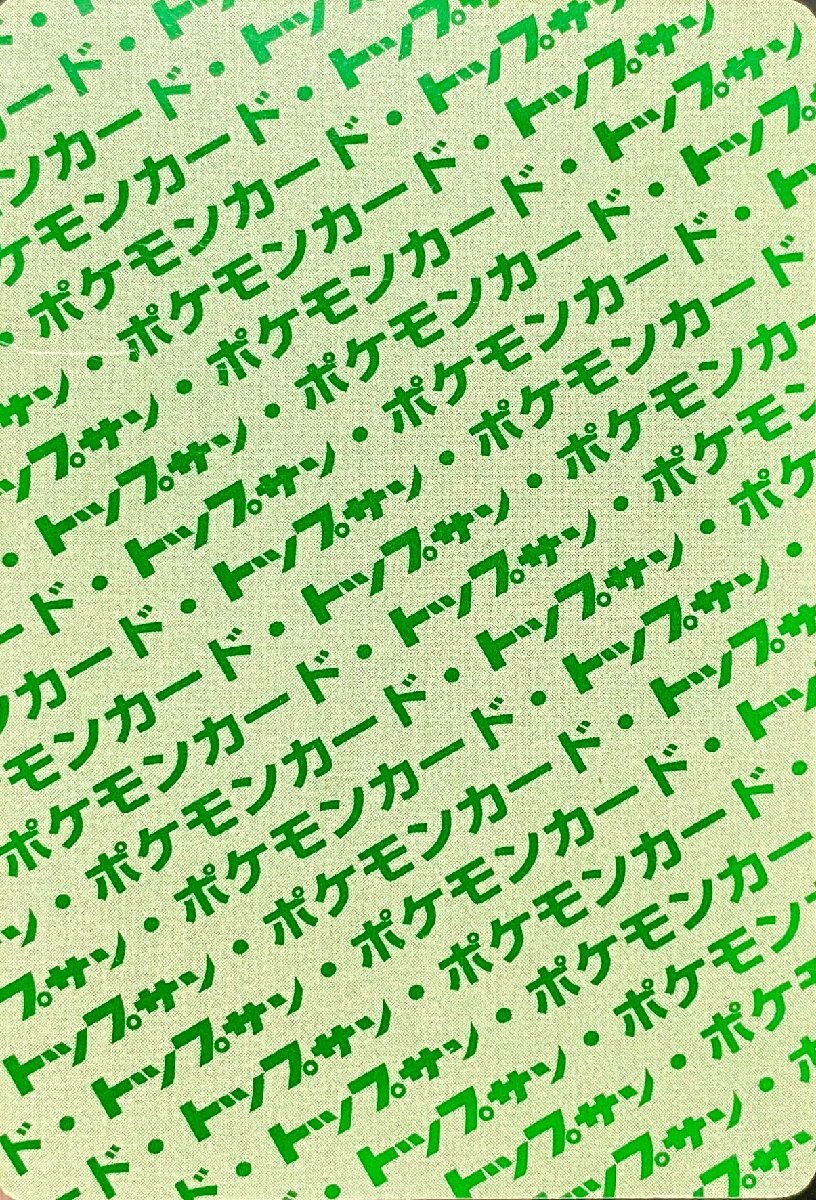 ード・ト
ンカード・トッ
ケモンカード・トップサ
・ポケモンカード・トップサン
サン・ポケモンカード・トップサン
ップサン・ポケモンカード・トップサン
・トップサン・ポケモンカード・トップサ
ード・トップサン・ポケモンカード・トッ
ンカード・トップサン・ポケモンカード
モンカード・トップサン・ポケモンカー
ポケモンカード・トップサン・ポケモン
ン・ポケモンカード・トップサン・ポケ
プサン・ポケモンカード・トップサン・
トップサン・ポケモンカード・トップサ
ド・トップサン・ポケモンカード・トッ
ード・トップサン・ポケモンカード・
ド・トップサン・ポケモンカー
・トップサン・ポケモン
トップサン・ポケモ
ップサン・ポ
プサ